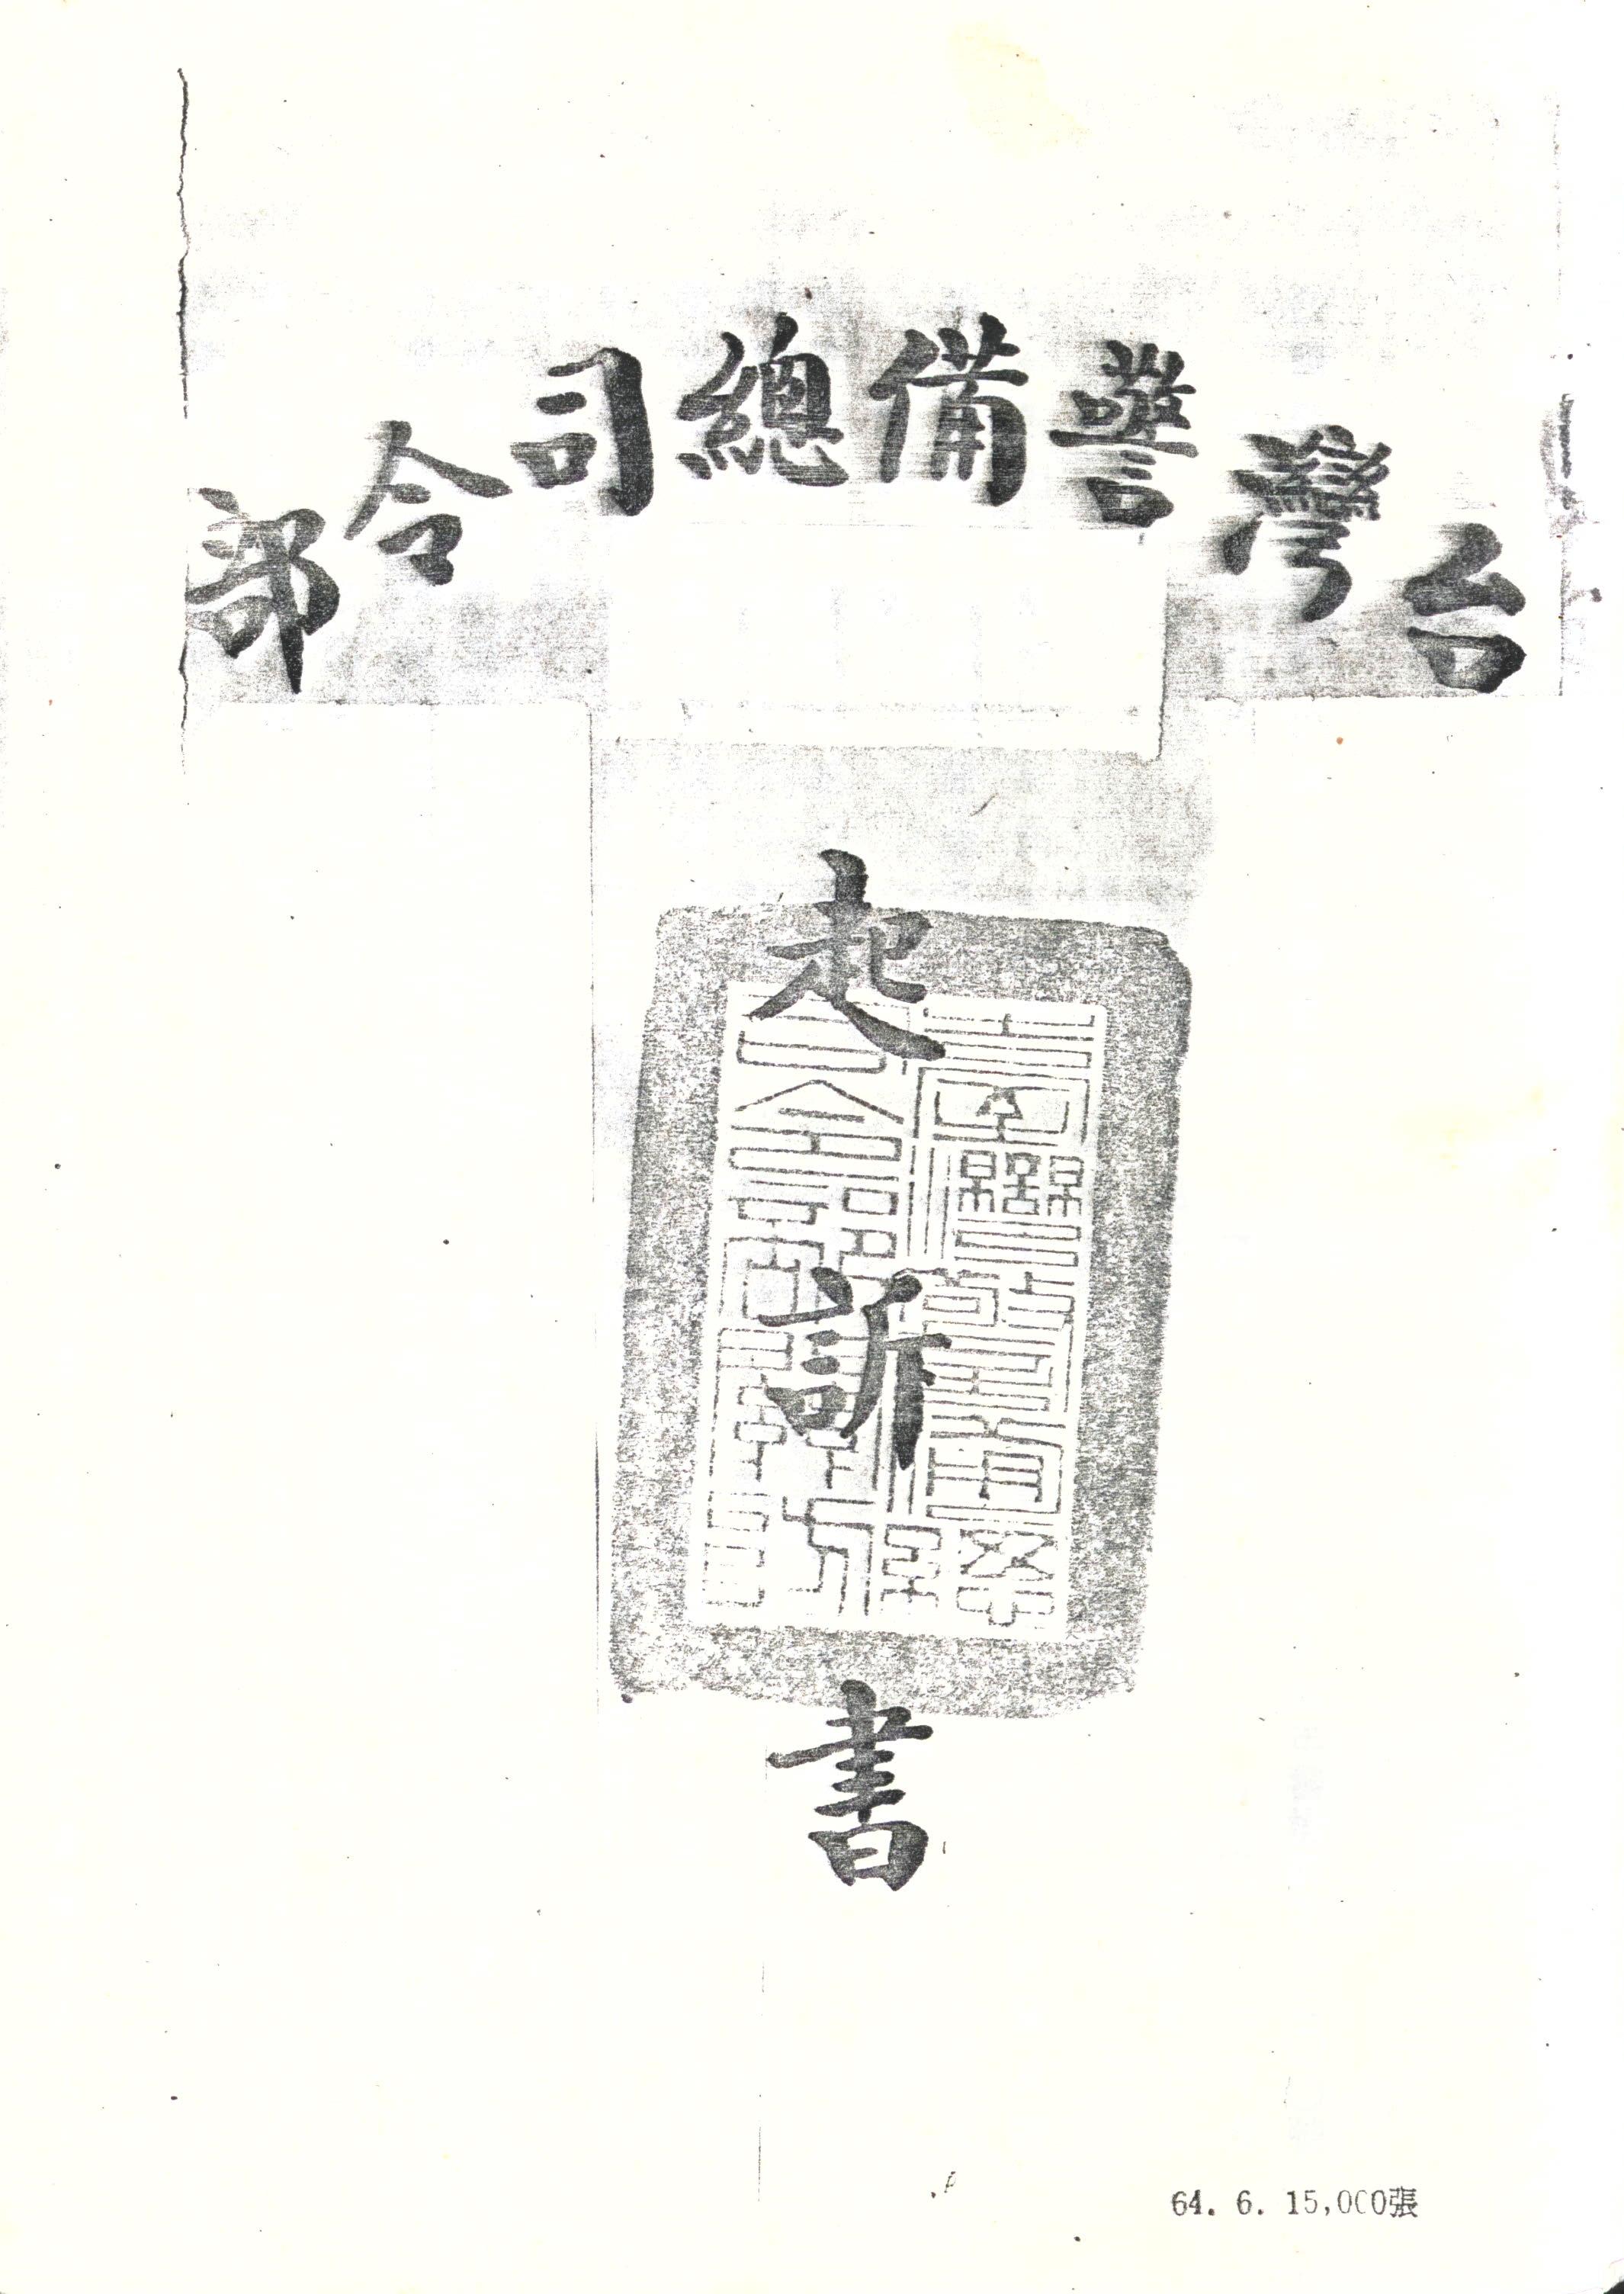 台灣警備總司令部
起訴書
64. 6. 15,000張